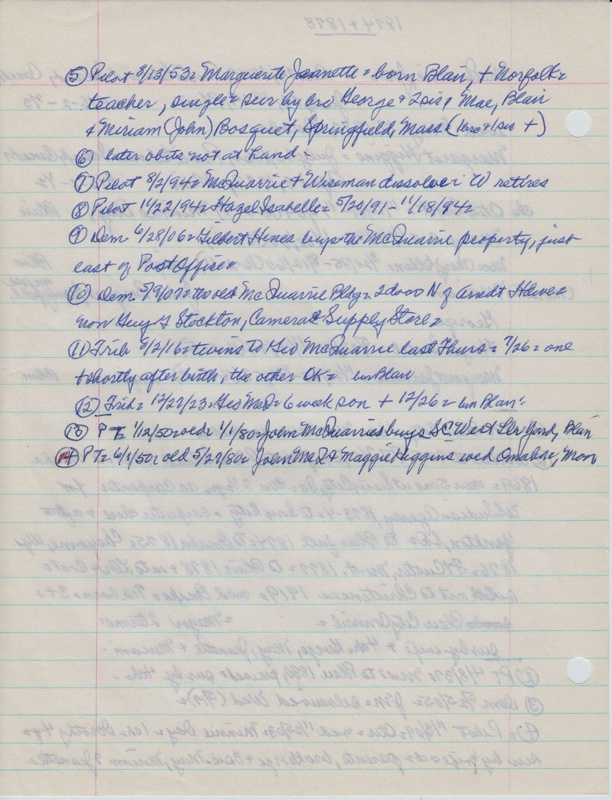 ⑤ Pilot 8/13/53 = Marguerite Jeanette = born Blair, + Norfolk =
teacher, single = sur by bro George + 2 sis, Mae, Blair
+ Miriam (John) Bosquet, Springfield, Mass (1 bro + 1 sis +)
⑥ later obits not at hand =
⑦ Pilot 8/2/94 = McQuarrie + Wiseman dissolve = W retires
⑧ Pilot 11/22/94 = Hazel Isabelle = 5/20/91 - 11/18/94 =
⑨ Dem 6/28/06 = Gilbert Hines buys the McQuarrie property, just
east of Post Office =
⑩ Dem 5/9/07 = the old McQuarrie Bldg = 2 doors N of
now Guy Stockton, Camera & Supply Store =
⑪ Trib 8/2/16 = twins to Geo McQuarrie last Thurs = 7/26 = one
+ shortly after birth, the other OK = in Blair
⑫ Trib = 12/27/23 = Geo McQ = 6 week son + 12/26 = in Blair
⑬ PT = 1/12/50 = old = 1/1/80 = John McQuarrie buys West Lbr Yard, Blair
⑭ PT = 6/1/50 = old 5/27/80 = John McQ + Maggie Higgins wed Omaha, Mon